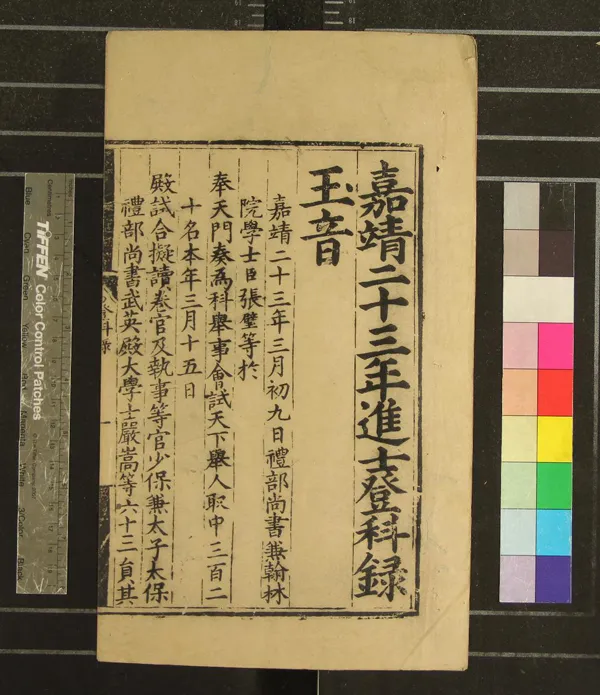 嘉靖二十三年進士登科録
玉音
嘉靖二十三年三月初九日禮部尚書兼翰林
院學士臣張璧等於
奉天門奏爲科舉事會試天下舉人取中三百二
十名本年三月十五日
殿試合擬讀卷官及執事等官少保兼太子太保
禮部尚書武英殿大學士嚴嵩等六十三員其
TIFFEN Color Control Patches
Blue
Cyan
Green
Yellow
Red
Magenta
White
3/Color
Black